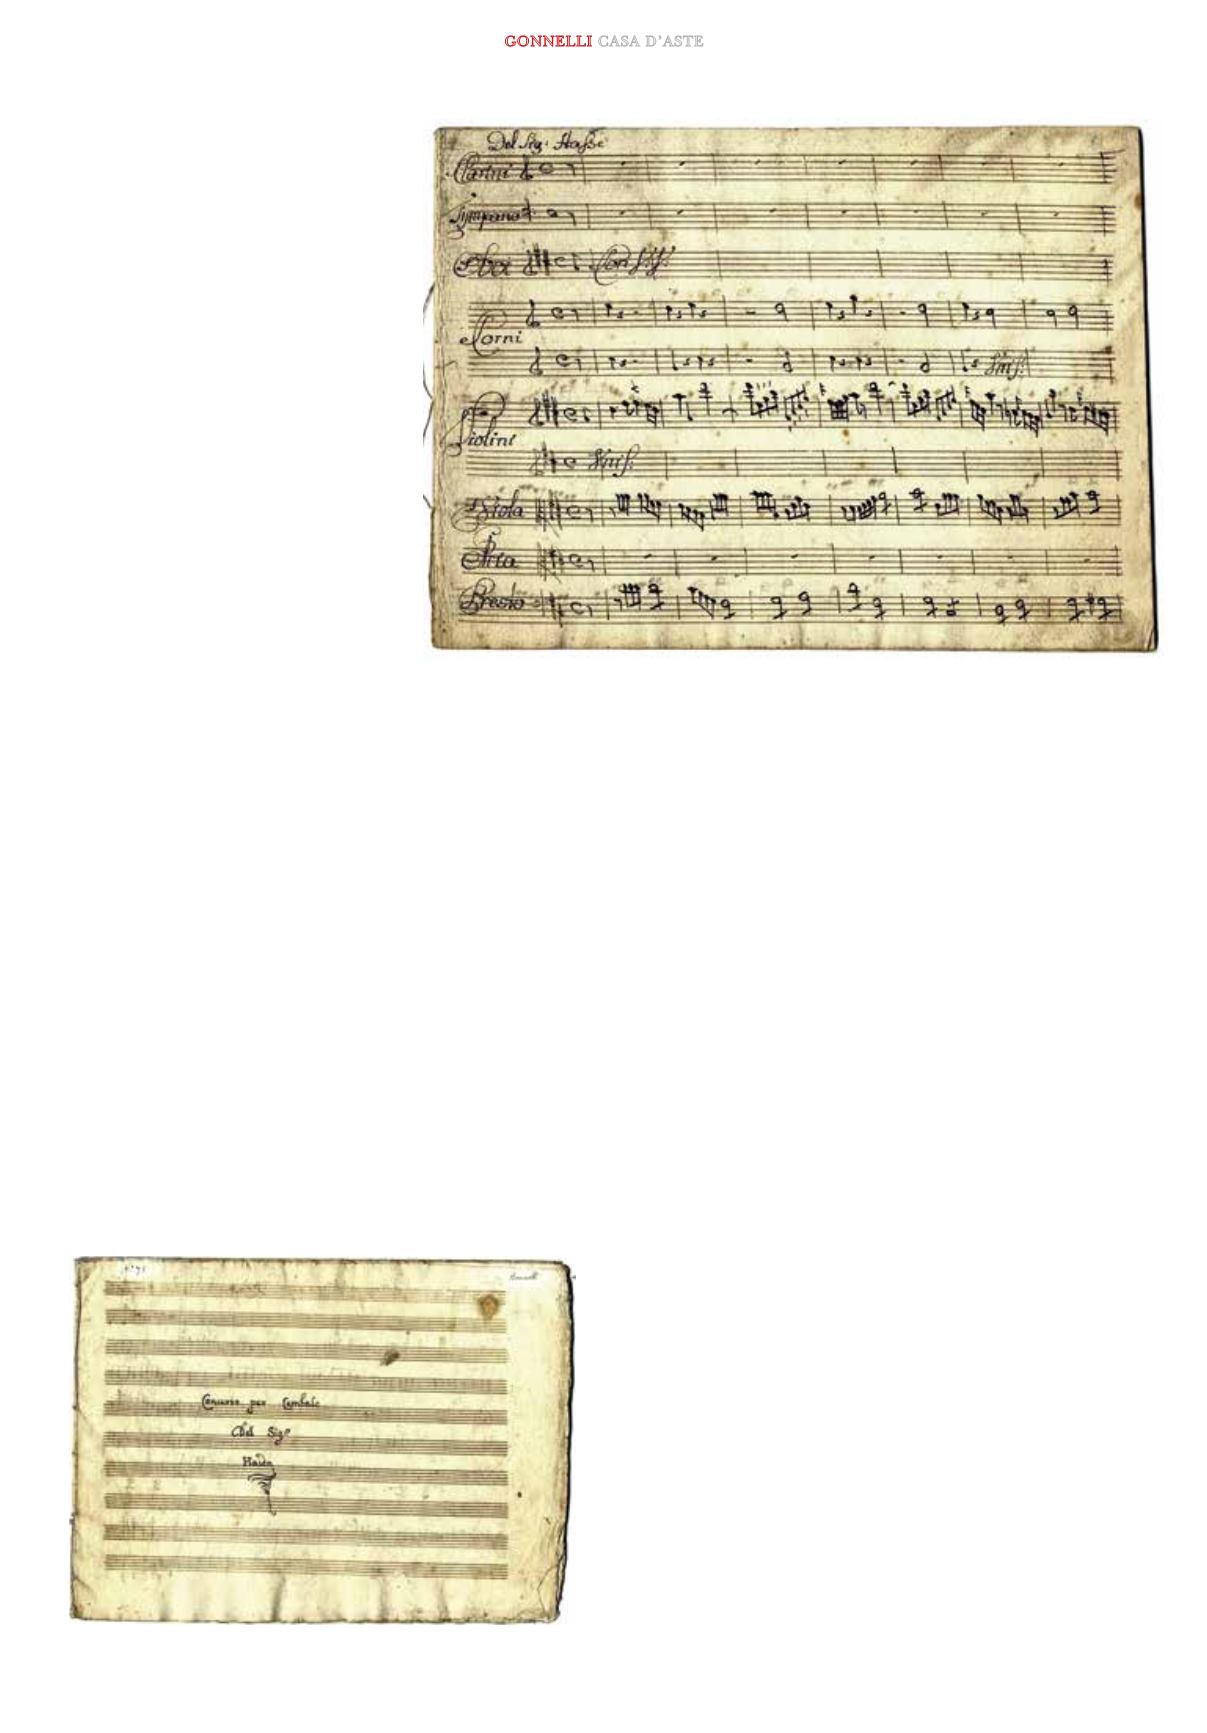 GONNELLI CASA D'ASTE
Del Sig: Hasse
Clarini
Tympano
Oboi
Corni
Violini
Unis:
Viola
Aria
Presto
Concerto per Cembalo
Del Sigr
Haidn